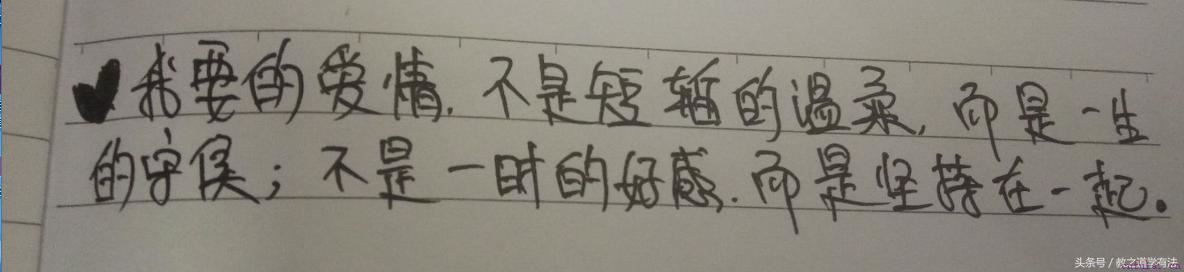 ♥我要的爱情,不是短暂的温柔,而是一生
的守侯;不是一时的好感.而是坚持在一起。
头条号/教之道学有法